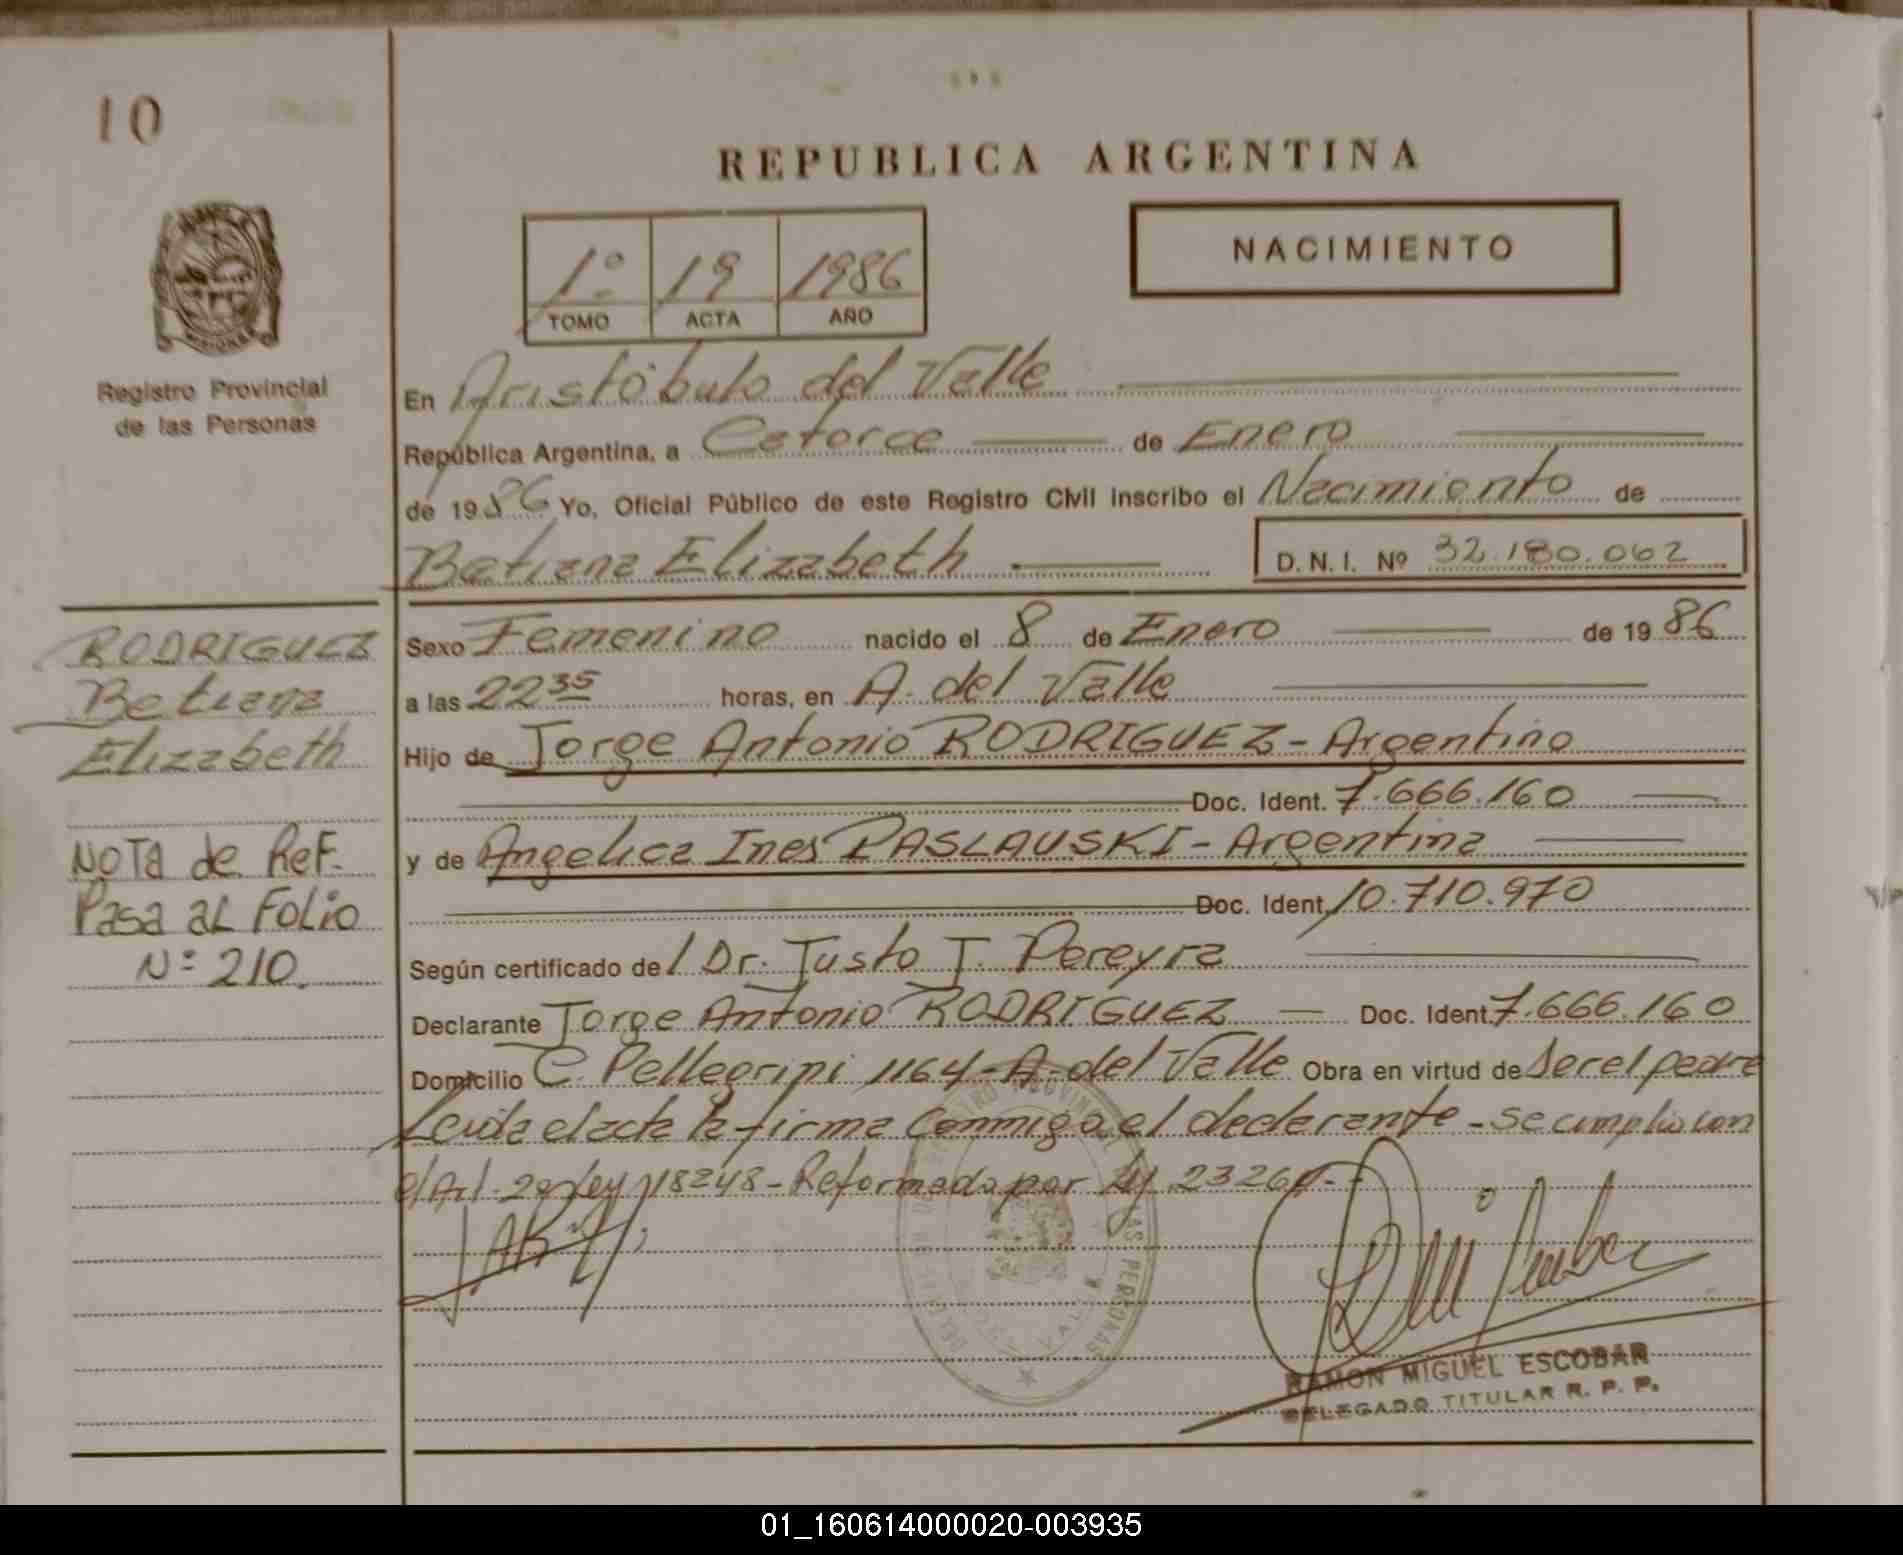 10
REPUBLICA ARGENTINA
NACIMIENTO
1º 19 1986
TOMO ACTA AÑO
Registro Provincial
de las Personas
En Aristóbulo del Valle
República Argentina, a Catorce de Enero
de 1986 Yo, Oficial Público de este Registro Civil inscribo el Nacimiento de
Betiana Elizabeth D.N.I. Nº 32.180.062
RODRIGUEZ
Betiana
Elizabeth
Sexo Femenino nacido el 8 de Enero de 1986
a las 22 35 horas, en A. del Valle
Hijo de Jorge Antonio RODRIGUEZ - Argentino
Doc. Ident. 7.666.160
y de Angelica Ines PASLAUSKI - Argentina
Doc. Ident. 10.710.970
NOTA de ReF.
Pasa aL FoLio
Nº 210.
Según certificado del Dr. Justo J. Pereyra
Declarante Jorge Antonio RODRIGUEZ Doc. Ident. 7.666.160
Domicilio C. Pellegrini 1164 - A. del Valle Obra en virtud de ser el padre
Leida el acta la firma conmigo el declarante - se cumplio con
el Art. Ley 18248 - Reformado por Ley
RAMON MIGUEL ESCOBAR
DELEGADO TITULAR R. P. P.
01_160614000020-003935